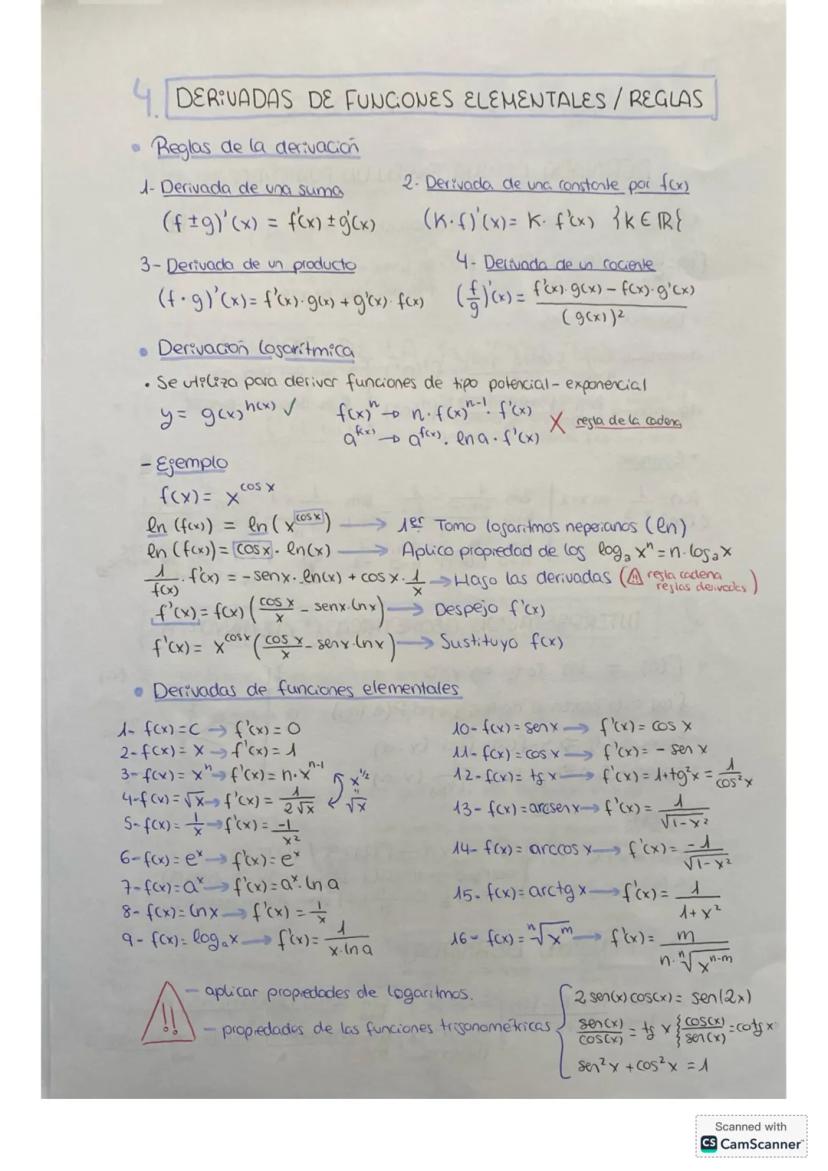 4. DERIVADAS DE FUNCONES ELEMENTALES / REGLAS
• Reglas de la derivación
1- Derivada de una suma
(f ± g)'(x) = f'(x) ± g'(x)
2- Derivada de una constante por f(x)
(K·f)'(x) = K· f'(x) {K ∈ ℝ{
3- Derivada de un producto
(f · g)'(x) = f'(x)·g(x) + g'(x)·f(x)
4- Derivada de un cociente
(f/g)'(x) = f'(x)·g(x) − f(x)·g'(x) / (g(x))²
• Derivación logarítmica
• Se utiliza para derivar funciones de tipo potencial - exponencial
y = g(x)^h(x) ✓ f(x)^n → n·f(x)^(n-1)·f'(x)
a^f(x) → a^f(x)·ln a·f'(x) X regla de la cadena
- Ejemplo
f(x) = x^cos x
ln (f(x)) = ln (x^cos x) → 1er Tomo logaritmos neperianos (ln)
ln (f(x)) = cos x · ln(x) → Aplico propiedad de los logₐ x^n = n·logₐ x
1/f(x) · f'(x) = -senx·ln(x) + cos x · 1/x → Hago las derivadas (⚠ regla cadena
reglas derivadas)
f'(x) = f(x) (cos x/x - senx·lnx) → Despejo f'(x)
f'(x) = x^cos x (cos x/x - senx·lnx) → Sustituyo f(x)
• Derivadas de funciones elementales
1- f(x) = C → f'(x) = 0
2- f(x) = x → f'(x) = 1
3- f(x) = x^n → f'(x) = n·x^(n-1)
x^1/2
"
√x
4- f(x) = √x → f'(x) = 1/2√x
5- f(x) = 1/x → f'(x) = -1/x²
6- f(x) = e^x → f'(x) = e^x
7- f(x) = a^x → f'(x) = a^x·ln a
8- f(x) = lnx → f'(x) = 1/x
9- f(x) = logₐ x → f'(x) = 1/x·ln a
10- f(x) = senx → f'(x) = cos x
11- f(x) = cosx → f'(x) = - sen x
12- f(x) = tg x → f'(x) = 1+tg²x = 1/cos²x
13- f(x) = arcsenx → f'(x) = 1/√1-x²
14- f(x) = arccos x → f'(x) = -1/√1-x²
15- f(x) = arctg x → f'(x) = 1/1+x²
16- f(x) = ⁿ√x^m → f'(x) = m/n·ⁿ√x^(n-m)
!!
- aplicar propiedades de logaritmos.
- propiedades de las funciones trigonométricas
2 sen(x) cos(x) = sen(2x)
sen(x)/cos(x) = tg x { cos(x)/sen(x) = cotg x
sen²x + cos²x = 1
Scanned with
CS CamScanner